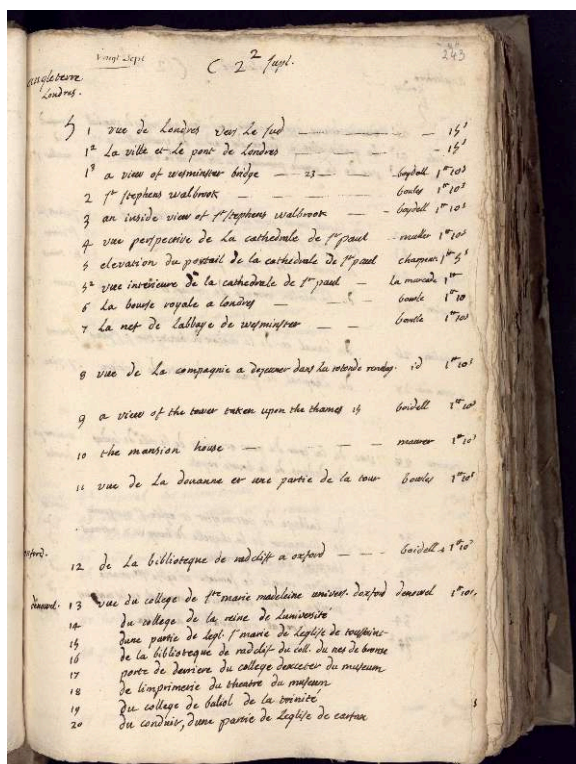 Vingt Sept
C 2 2 Supl.
243
angleterre
Londres.
5 1 vue de Londres vers le sud — 15s
1a La ville et Le pont de Londres — 15s
1B a view of wesminster bridge — 23 — boydell 1tt 10s
2 st stephens walbrook — bowles 1tt 10s
3 an inside view of st stephens walbrook — boydell 1tt 10s
4 vue perspective de La cathedrale de st paul muller 1tt 10s
5 elevation du portail de la cathedrale de st paul charpent 1tt 5s
5a vue interieure de la cathedrale de st paul — La marcade 1tt
6 La bourse royale a londres — bowle 1tt 10
7 La nef de Labbaye de wesminster — bowle 1tt 10s
8 vue de La compagnie a dejeuner dans La rotonde id 1tt 10s
9 a view of the tower taken upon the thames 15 boidell 1tt 10s
10 the mansion house — maurer 1tt 10s
11 vue de La douanne et une partie de la tour bowles 1tt 10s
oxford.
12 de La biblioteque de radclift a oxford — boidell 1tt 10s
13 vue du college de ste marie madeleine univers. doxford 1tt 10s
14 du college de la reine de Luniversité
15 dune partie de Legl. st marie de Leglise de toussaint
16 de la biblioteque de radclif du coll. du nes de bronse
17 porte de derriere du college dexceter du museum
18 de limprimerie du theatre du museum
19 du college de baliol de la trinité
20 du conduit, dune partie de Leglise de carfax